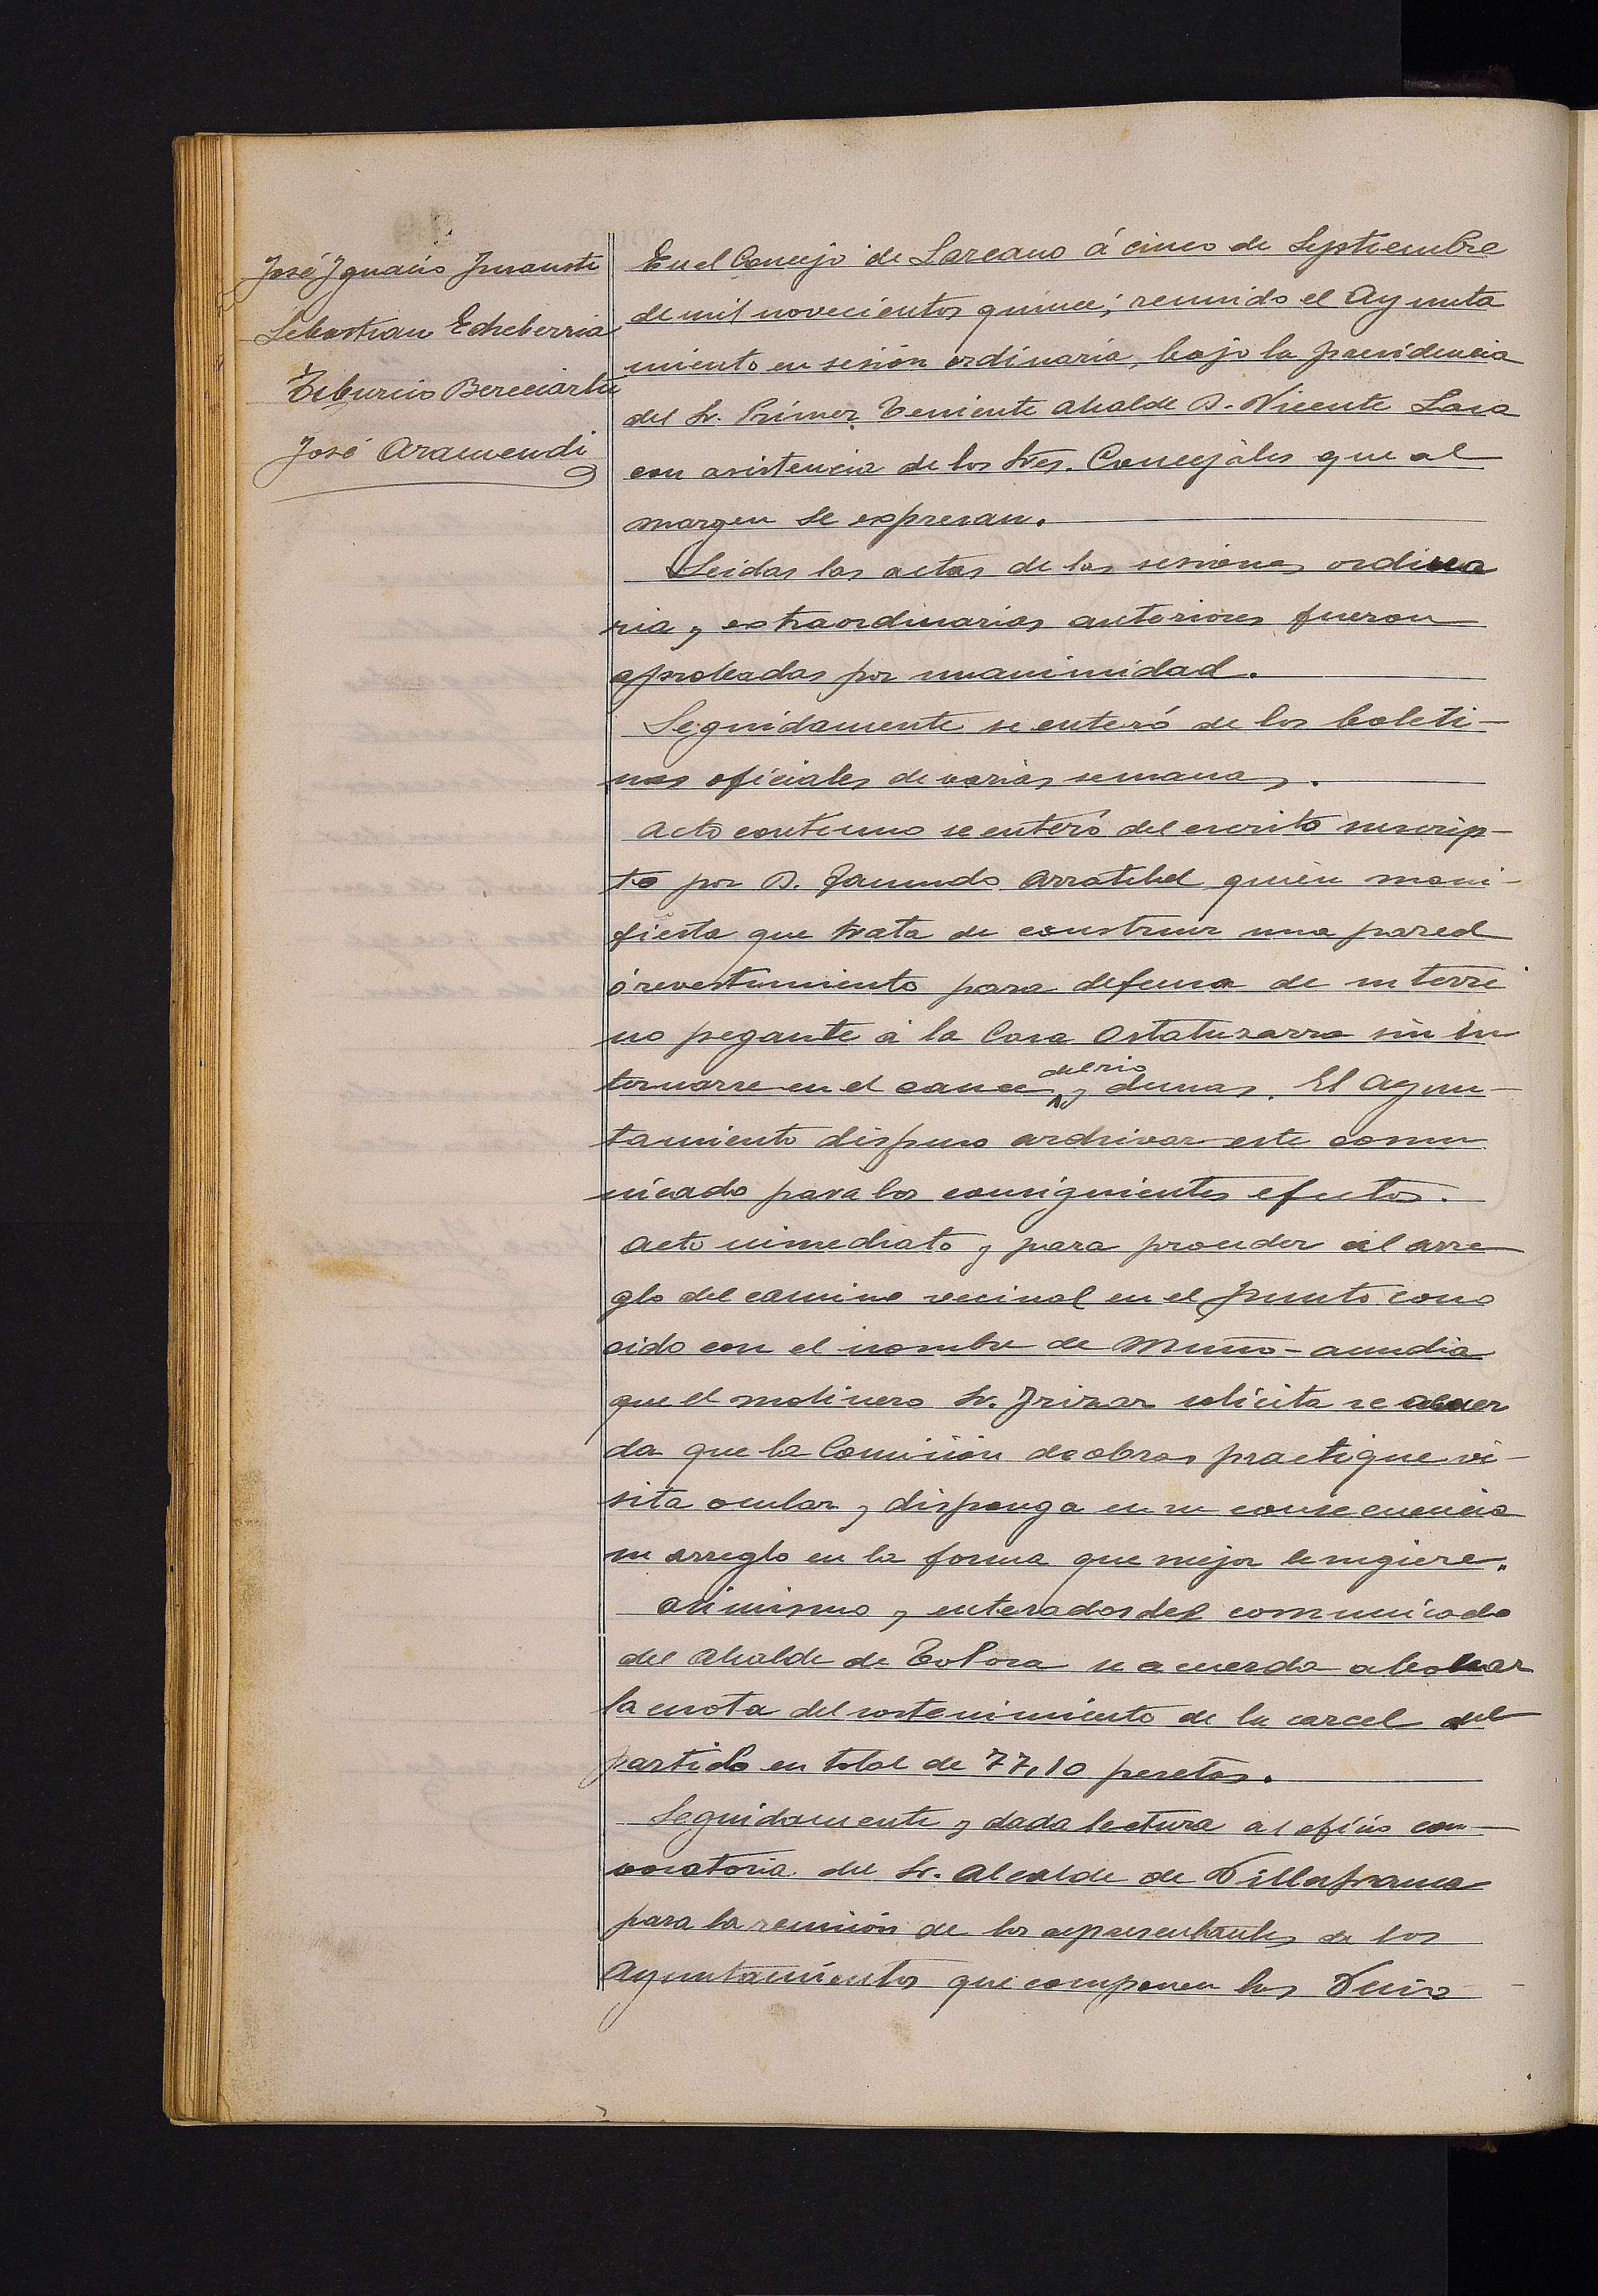 José Ygnacio Jmausti
Sebastian Echeberria
Tiburcio Bereciartu
José Aramendi
En el Concejo de Lazcano á cinco de Septiembre
de mil novecientos quince; reunido el Ayunta
miento en sesión ordinaria, bajo la presidencia
del Sr. Primer Teniente Alcalde D. Vicente Lasa
con asistencia de los Sres. Concejáles que al
margen se expresan.
Leidas las actas de las sesiones ordina
ria y extraordinarias anteriores fueron
aprobadas por unanimidad.
Seguidamente se enteró de los boleti-
nes oficiales de varias semanas.
Acto continuo se enteró del escrito suscrip-
to por D. Facundo Arratibel quien mani-
fiesta que trata de construir una pared
ó revestimiento para defensa de su terre
no pegante á la Casa Ostatuzarra sin in
ternarse en el cauce del rio y demas. El Ayun-
tamiento dispuso archivar este comu
nicado para los consiguientes efectos.
Acto inmediato y para proceder al arre
glo del camino vecinal en el punto cono
cido con el nombre de Muno-aundia
que el molinero Sr. Irizar solicita se acuer
da que la Comisión de obras practique vi-
sita ocular y disponga en su consecuencia
su arreglo en la forma que mejor le sugiere.
Asimismo y enterados del comunicado
del Alcalde de Tolosa se acuerda abonar
la cuota del sostenimiento de la carcel del
partido en total de 77,10 pesetas.
Seguidamente y dada lectura al oficio con-
vocatoria del Sr. Alcalde de Villafranca
para la reunión de los representantes de los
Ayuntamientos que componen las